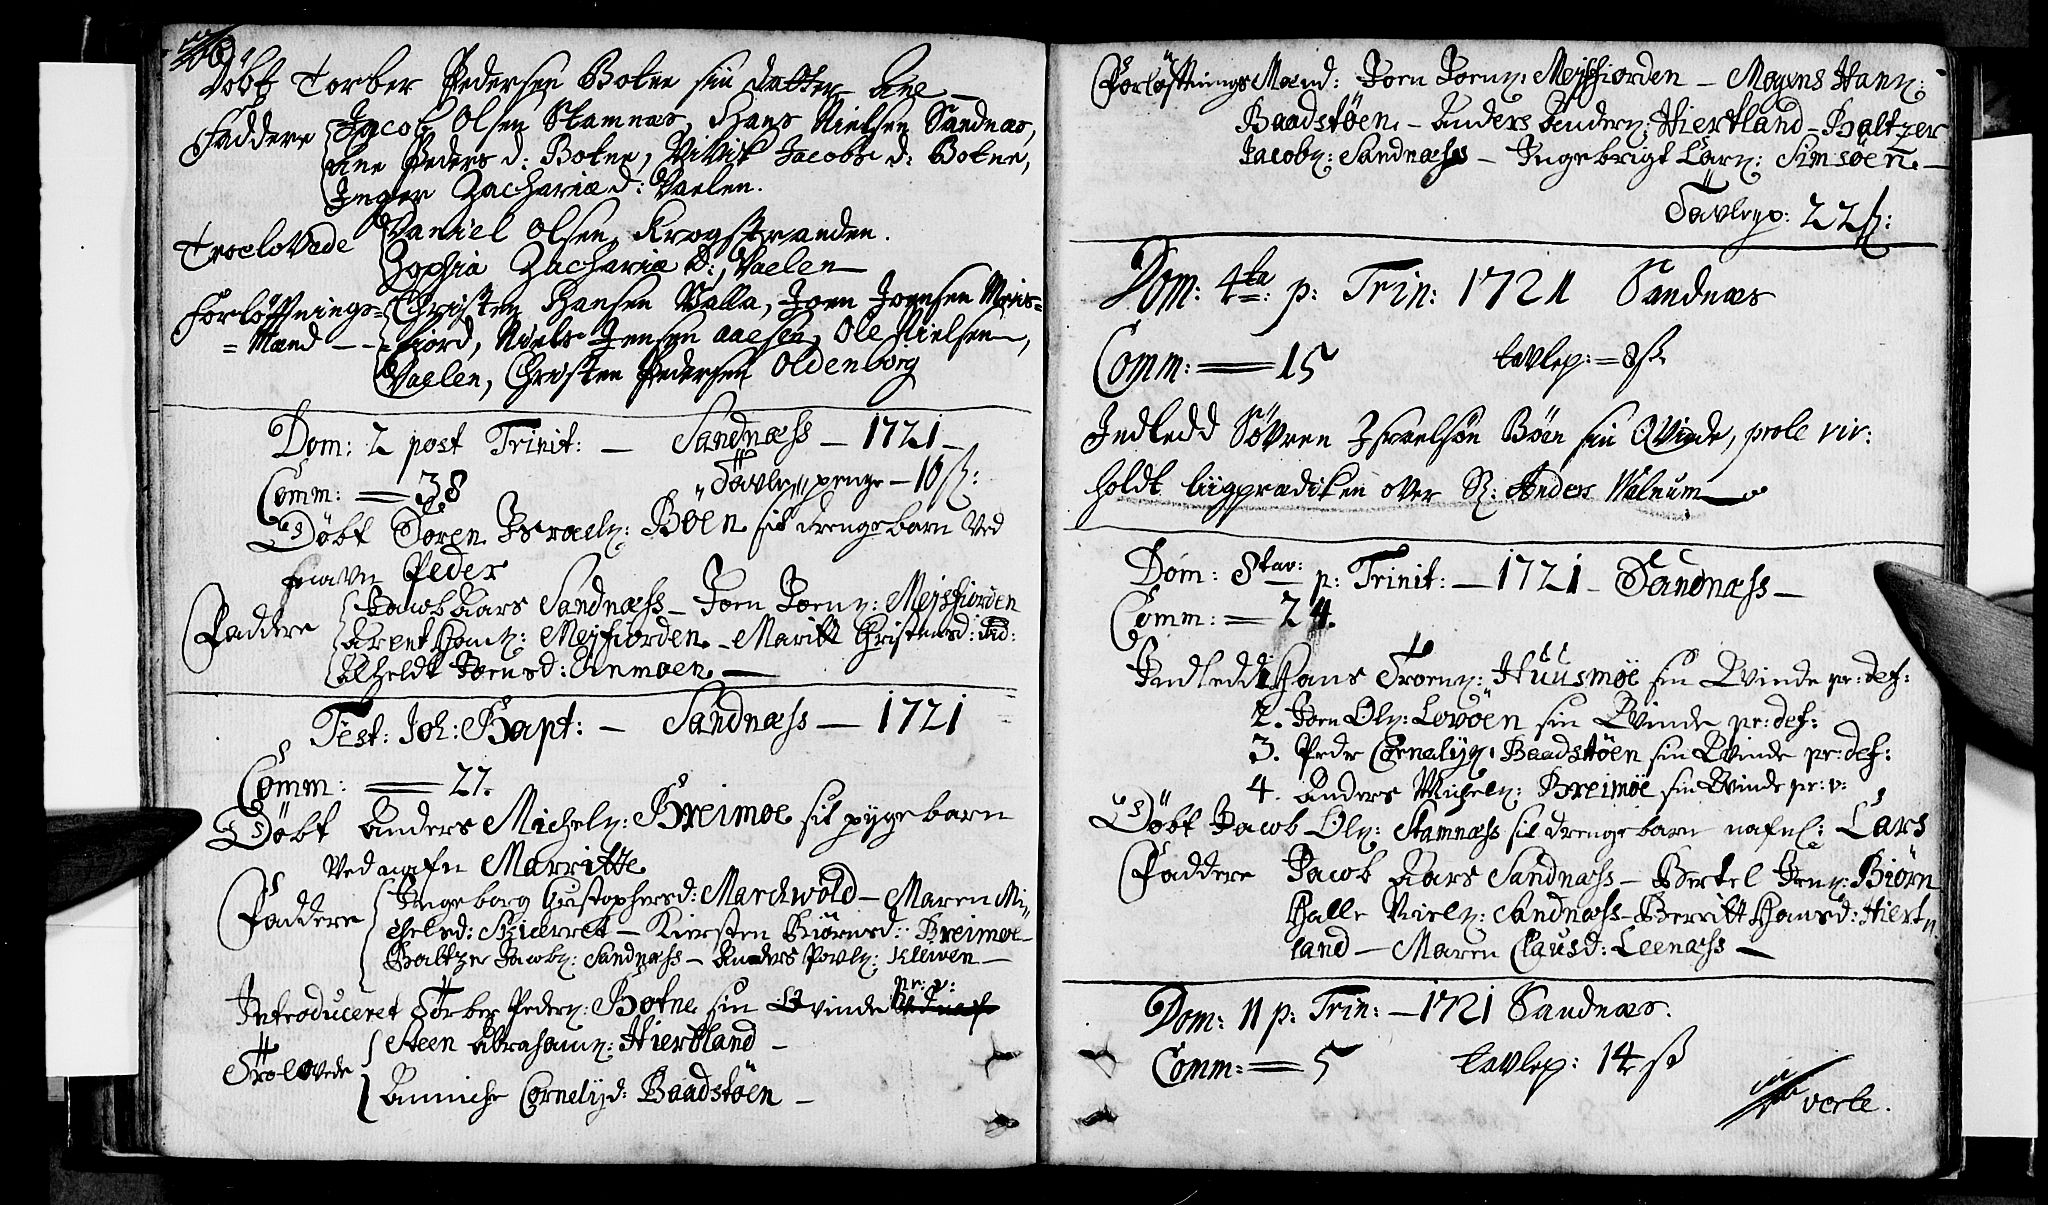 Döbt Torber Pedersen Botne sin datter Ane
Faddere Jacob Olsen Stamnæs, Hans Nielsen Sandnæs,
Ane Peders d: Botne, Vivik Jacobs d: Botne,
Inger Zachariæ d: Vaelen.
Troelovede Daniel Olsen, Krogstranden.
Sophia Zachariæ d:, Vaelen
Forløffnings= Christen Hansen Valla, Joen Joensen Meis=
=Mænd -- fiord, Niels Jensen Aaesen, Ole Nielsen,
Vaelen, Christen Pedersen Oldenborg
Dom: 2 post Trinit: — Sandnæss — 1721 —
Comm: = 38 Tavle penge — 10 ß:
Döbt Sören Israelz: Böen sit drengebarn ved
navn Peder
Faddere Jacob Aars Sandnæss — Joen Joenz: Mejsfiorden
Arent Hanz: Mejsfiorden — Maritt Christensd: ibid:
Alheldt Joensd: Einmoen —
Fest: Joh: Bapt: — Sandnæss — 1721
Comm: = 27.
Döbt Anders Michelz: Breimoe sit pygebarn
ved nafn Marritte
Faddere Ingeborg Christophersd: Marchvold — Maren Mi
chelsd: — Kiersten Biörnsd: Breimoe —
Baltzer Jacobz: Sandnæss — Anders Povlz: Klewen —
Introduceret Törber Pederz: Botne sin Qvinde pr: v:
Trolovede Steen Abrahamz: Hiertland —
Anniche Cornelijd: Baadstöen —
Forlöffnings Mænd: Joen Joenz: Mejsfiorden — Mogens Hanz:
Baadstöen — Anders Anderz: Hiertland — Baltzer
Jacobz: Sandnæss — Ingebrigt Larz: Simsöen —
Tavlep: 22 ß:
Dom: 4ta: p: Trin: 1721 Sandnæs
Comm: = 15 tavlep: = 8 ß
Indledd Sövren Israelsön Böen sin Qvinde, prole vir:
holdt liigprædiken over S: Anders Walnum
Dom: 8tav: p: Trinit: — 1721 — Sandnæss —
Comm: = 24.
Indledd 1. Hans Troenz: Huusmöe sin Qvinde pr: def:
2. Joen Olz: Lovöen sin Qvinde pr: def:
3. Peder Cornelijz: Baadstöen sin Qvinde pr: def:
4. Anders Michelz: Breimöe sin Qvinde pr: v:
Döbt Jacob Olz: Stamnæss sit drengebarn nafnl: Lars
Faddere Jacob Aars Sandnæss — Bertel Jenz: Biörn
Halle Nielz: Sandnæss — Berritt Hansd: Hiert
land — Maren Clausd: Leenæss —
Dom: 11 p: Trin: — 1721 Sandnæs.
Comm: = 5 tavlep: 14 ß
verte.